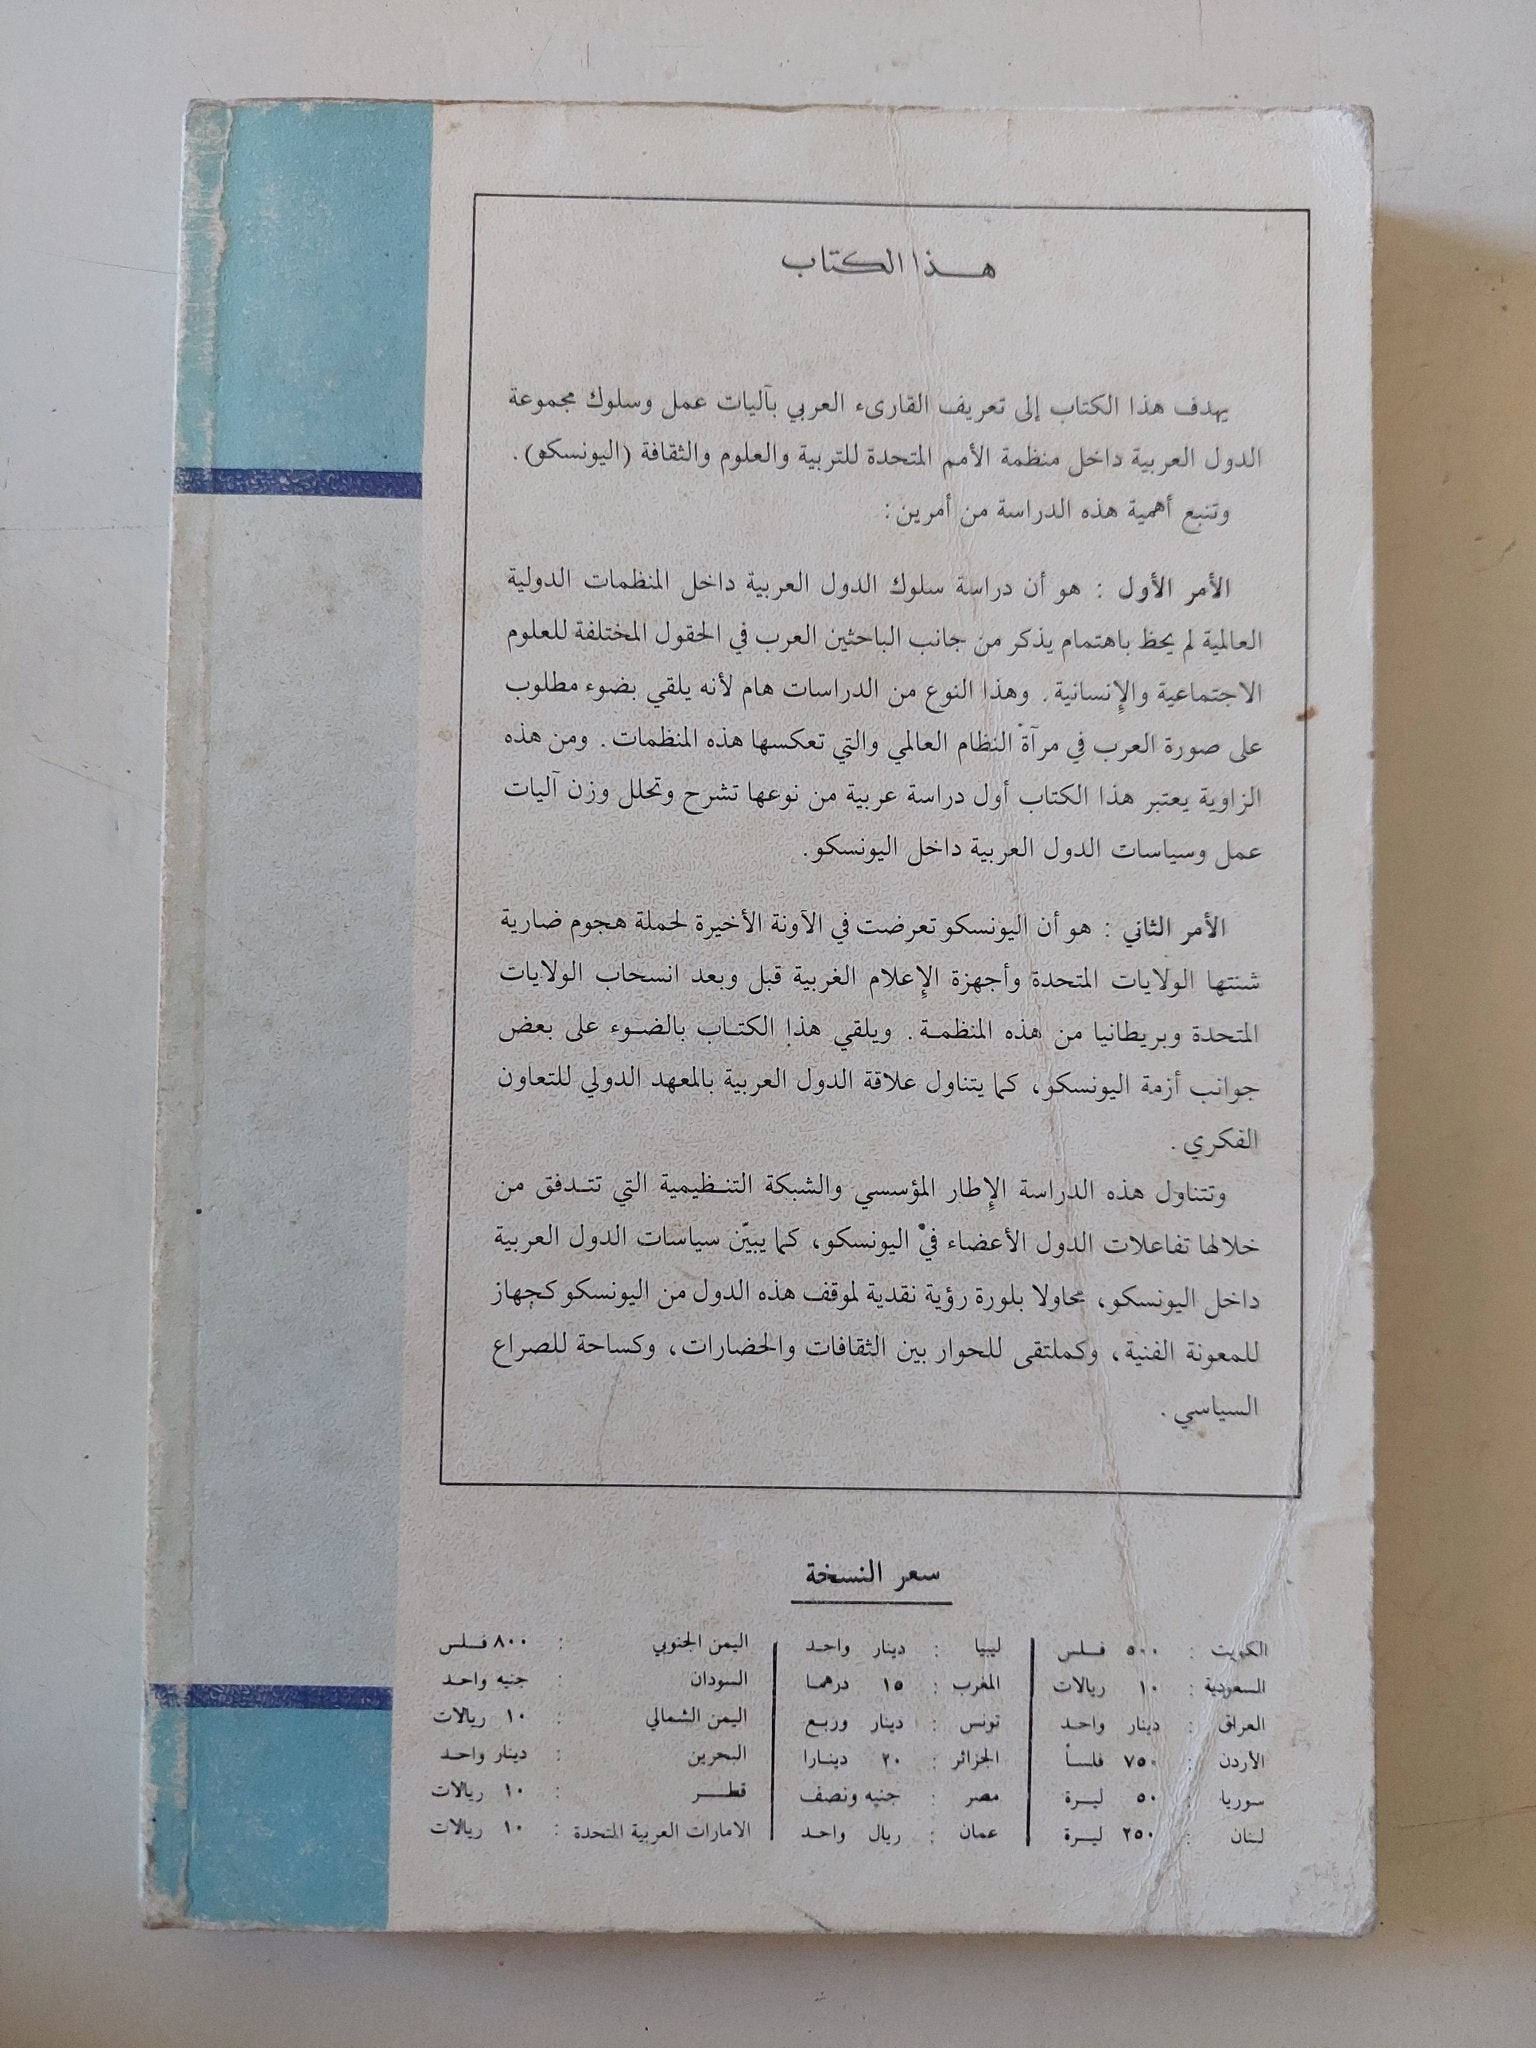 هذا الكتاب
يهدف هذا الكتاب إلى تعريف القارىء العربي بآليات عمل وسلوك مجموعة
الدول العربية داخل منظمة الأمم المتحدة للتربية والعلوم والثقافة (اليونسكو).
وتنبع أهمية هذه الدراسة من أمرين:
الأمر الأول : هو أن دراسة سلوك الدول العربية داخل المنظمات الدولية
العالمية لم يحظ باهتمام يذكر من جانب الباحثين العرب في الحقول المختلفة للعلوم
الاجتماعية والإنسانية. وهذا النوع من الدراسات هام لأنه يلقي بضوء مطلوب
على صورة العرب في مرآة النظام العالمي والتي تعكسها هذه المنظمات. ومن هذه
الزاوية يعتبر هذا الكتاب أول دراسة عربية من نوعها تشرح وتحلل وزن آليات
عمل وسياسات الدول العربية داخل اليونسكو.
الأمر الثاني : هو أن اليونسكو تعرضت في الآونة الأخيرة لحملة هجوم ضارية
شنتها الولايات المتحدة وأجهزة الإعلام الغربية قبل وبعد انسحاب الولايات
المتحدة وبريطانيا من هذه المنظمة. ويلقي هذا الكتاب بالضوء على بعض
جوانب أزمة اليونسكو، كما يتناول علاقة الدول العربية بالمعهد الدولي للتعاون
الفكري.
وتتناول هذه الدراسة الإطار المؤسسي والشبكة التنظيمية التي تتدفق من
خلالها تفاعلات الدول الأعضاء في اليونسكو، كما يبيّن سياسات الدول العربية
داخل اليونسكو، محاولا بلورة رؤية نقدية لموقف هذه الدول من اليونسكو كجهاز
للمعونة الفنية، وكملتقى للحوار بين الثقافات والحضارات، وكساحة للصراع
السياسي.
سعر النسخة
الكويت : ٥٠٠ فلس
السعودية : ١٠ ريالات
العراق : دينار واحد
الأردن : ٧٥٠ فلساً
سوريا : ٥٠ ليرة
لبنان : ٢٥٠ ليرة
ليبيا : دينار واحد
المغرب : ١٥ درهما
تونس : دينار وربع
الجزائر : ٢٠ دينارا
مصر : جنيه ونصف
عمان : ريال واحد
اليمن الجنوبي : ٨٠٠ فلس
السودان : جنيه واحد
اليمن الشمالي : ١٠ ريالات
البحرين : دينار واحد
قطر : ١٠ ريالات
الامارات العربية المتحدة : ١٠ ريالات